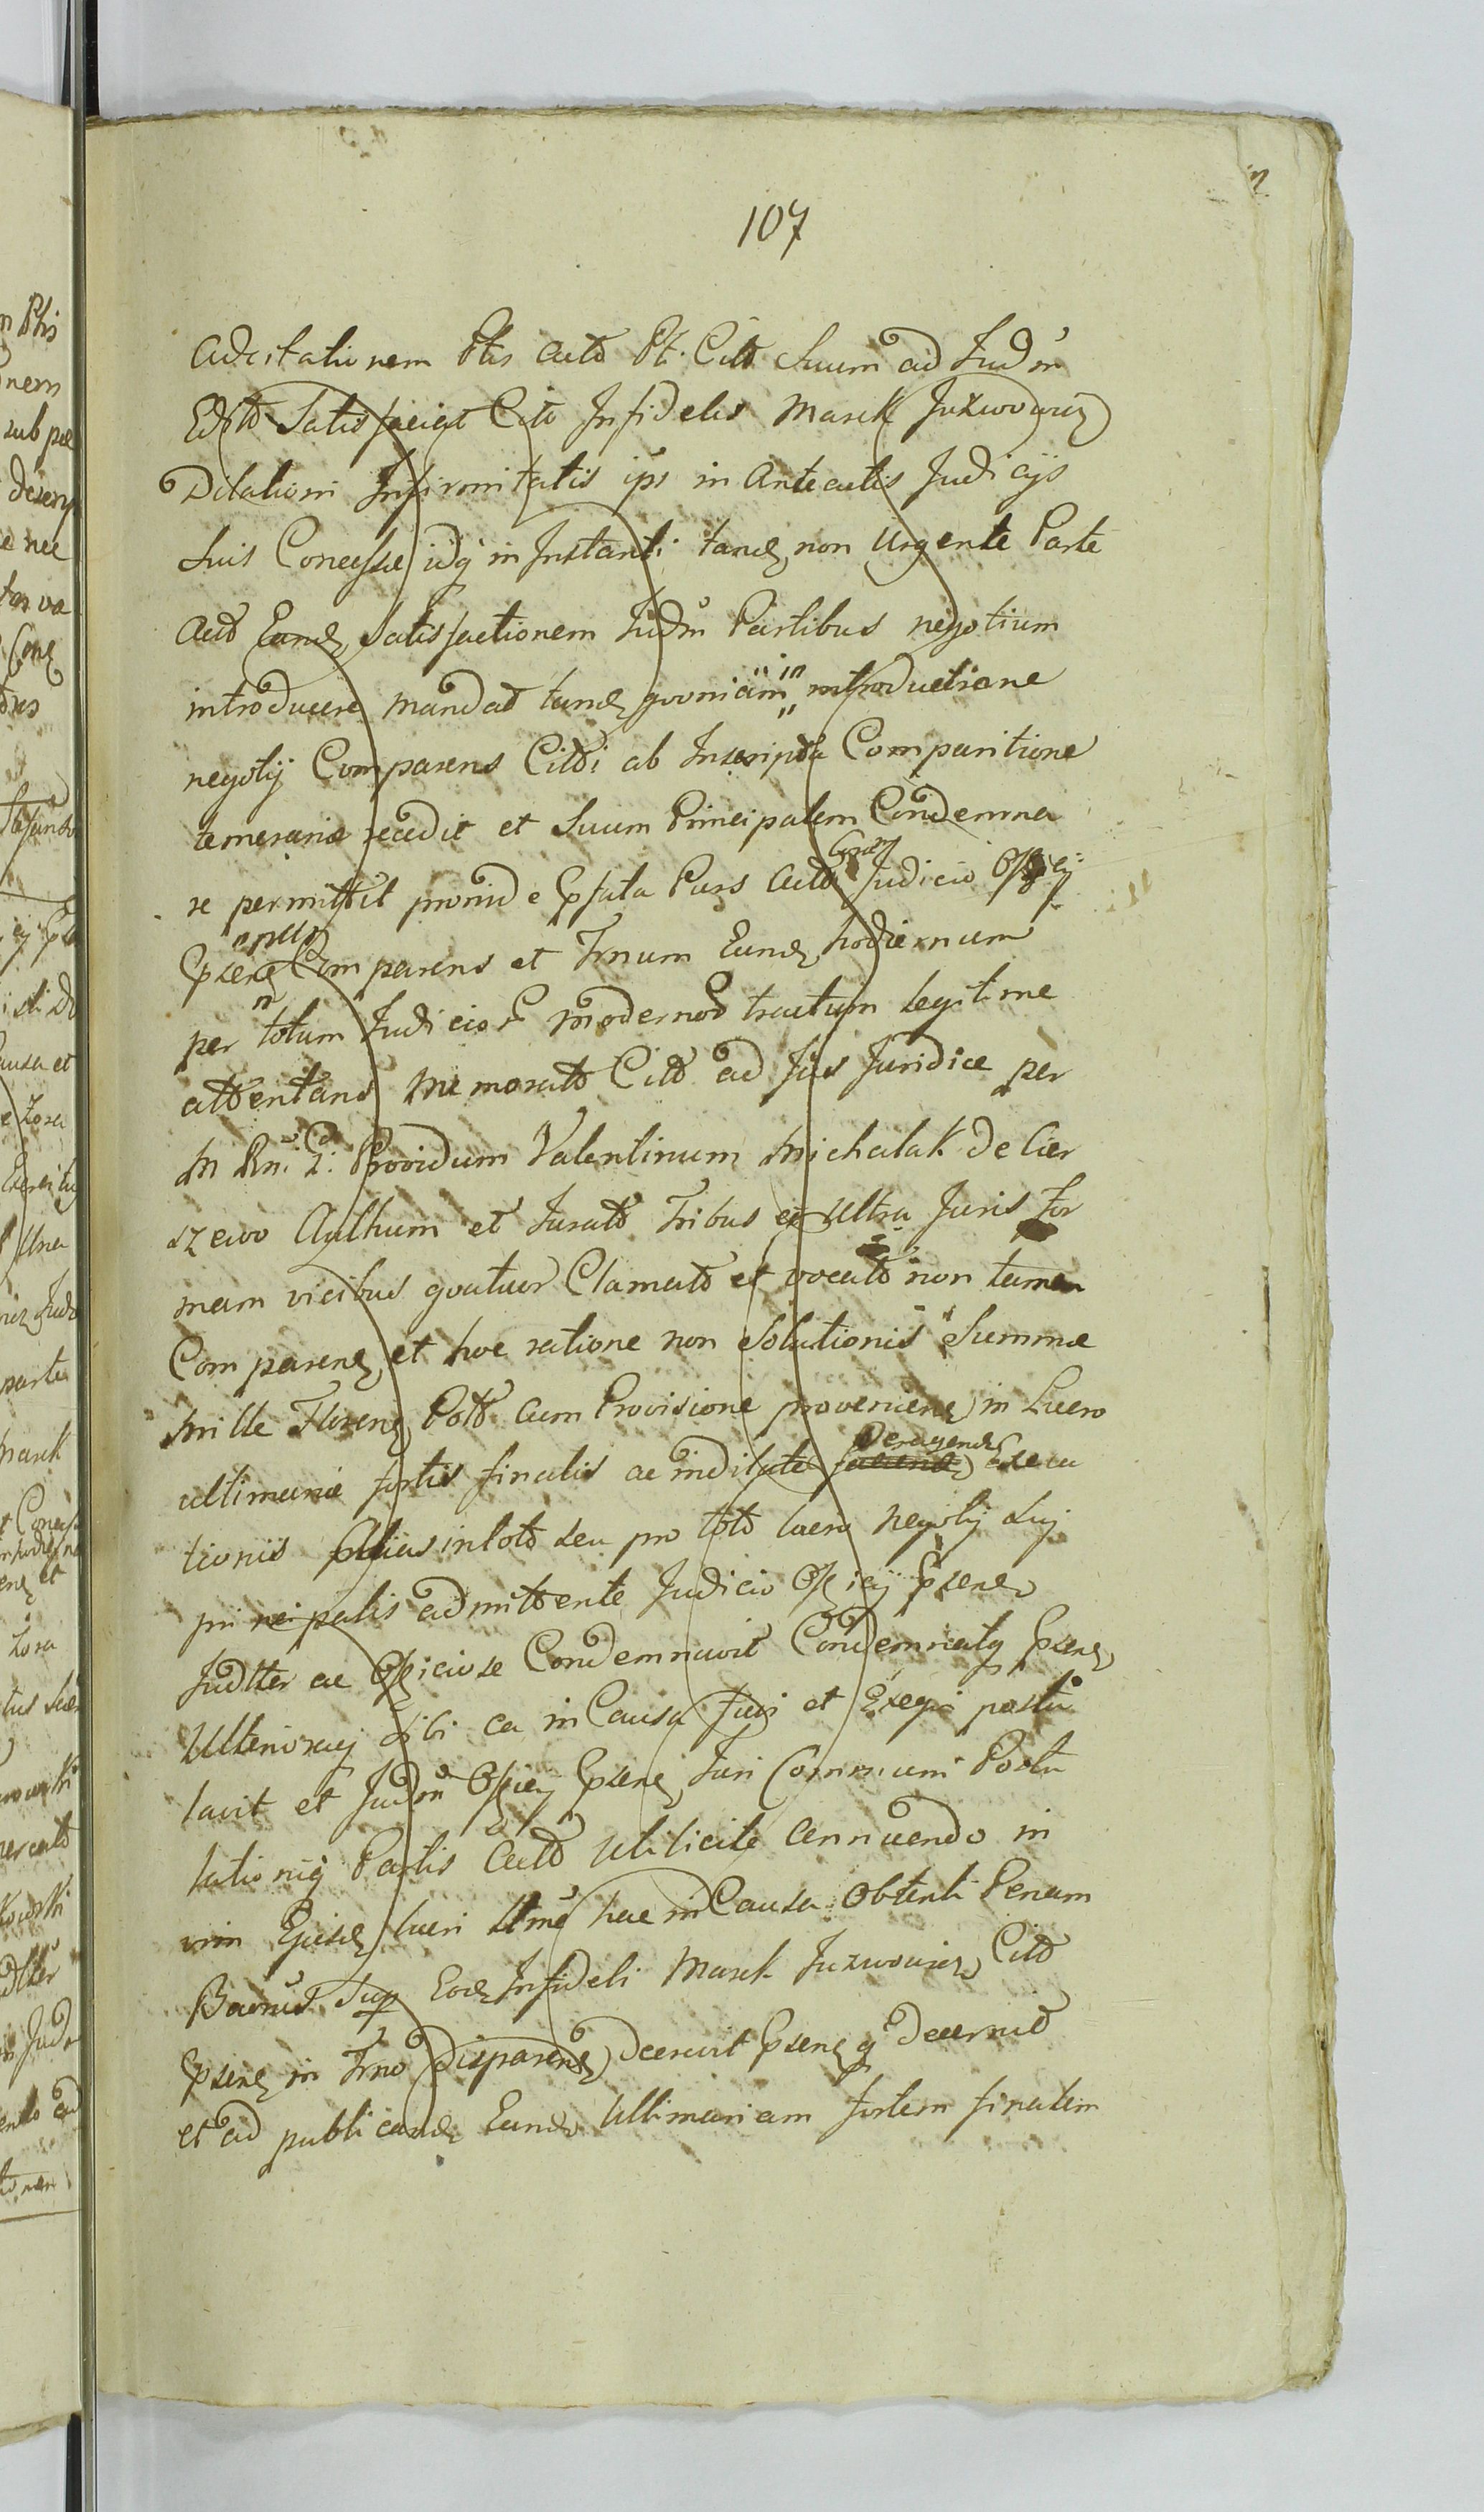 107
Adcitationem Ptis Actő Pt. Cittő Suum ad Judm
Edittő Satisfaciat Cittő Infidelis Marek Juzwowicz
Dilationi Infirmitatis ips in Anteactis Judicijs
Suis Concessae idq in Instanti tandz non Urgente Parte
Actő Eandz Satisfactionem Judm Partibus negotium
introducere mandat tandz quoniam in introductione
negotij Comparens Citti ab Inscripta Comparitione
temerarie recedit et Suum Principalem Condemna
re permittit proinde Epsata Pars Actő Coram Judicio Officij
Epsenz Comparens et Trnum Eundz hodiernum
per totum Judicior modernor tractum legitime
attentans memoratő Cittő ad Jus Juridice per
M Rni: D: Providum Valentinum Michalak de Cier
szewo Aulhum et Juratő Tribus et Ultra Juris for
mam vicibus quatuor Clamatő et vocatő non tamen
Comparenz et hoc ratione non Solutionis Summae
Mille Florenz Poll cum Provisione provenienz in Lucro
ultimariae sortis finalis ac indilate Peragendz Execu
tionis Alias in totő seu pro totő lucro negotij Sui
principalis admittente Judicio Officij Epsenz
Judtter ac Officiose Condemnavit Condemnatq Epsenz
Ulteriorq Sibi ea in Causa Juri et Exeqi postu
lavit et Judm Officij Epsenz Juri Communi Postu
lationiq Partis Actő Utilicite annuendo in
vim Ejusdz lucri Ulmo hac in Causa Obtenti Penam
Bannit Sup Eodz Infideli Marek Juzwowicz Cittő
Epsenz in Trno Disparendz Decrevit Epsenzq Decernit
et ad publicandz Eandz Ultimariam sortem finalem